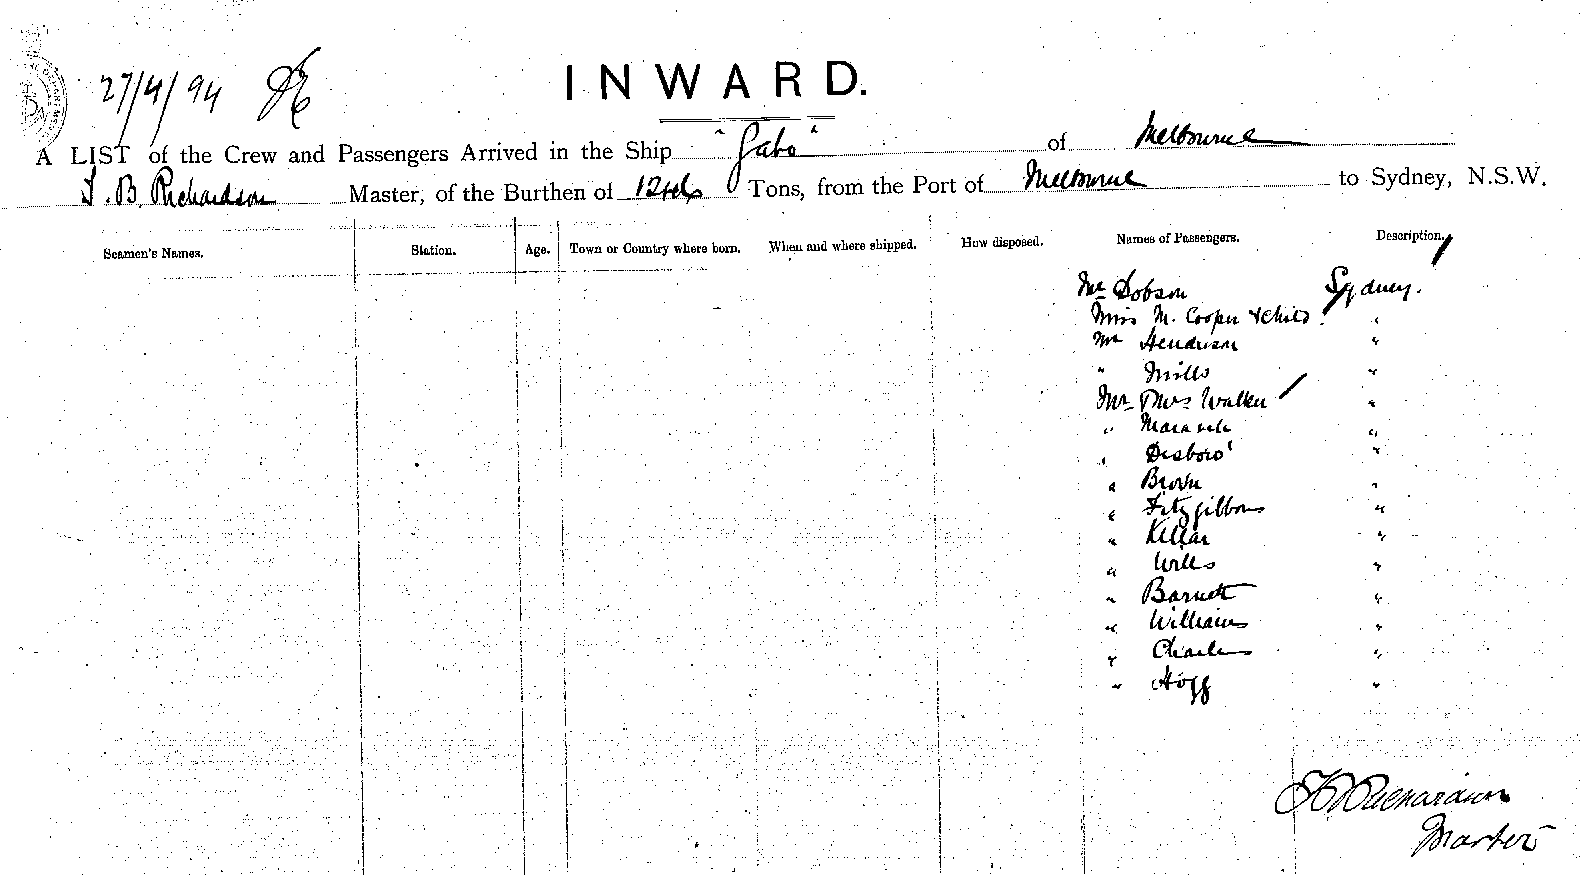 27/4/94
INWARD.
A LIST of the Crew and Passengers Arrived in the Ship "Gabo" of Melbourne
T. B. Richardson Master, of the Burthen of Tons, from the Port of Melbourne to Sydney, N.S.W.
Seamen's Names. Station. Age. Town or Country where born. When and where shipped. How disposed. Names of Passengers. Description.
Mr Dobson Sydney.
Miss M. Cooper & Child "
Mr Henderson "
" Mills "
Mr & Mrs Walker "
" "
" Desboro' "
" Brown "
" Fitzgibbons "
" Kellar "
" Wills "
" Barnett "
" Williams "
" Charles "
" Hogg "
Richardson
Master